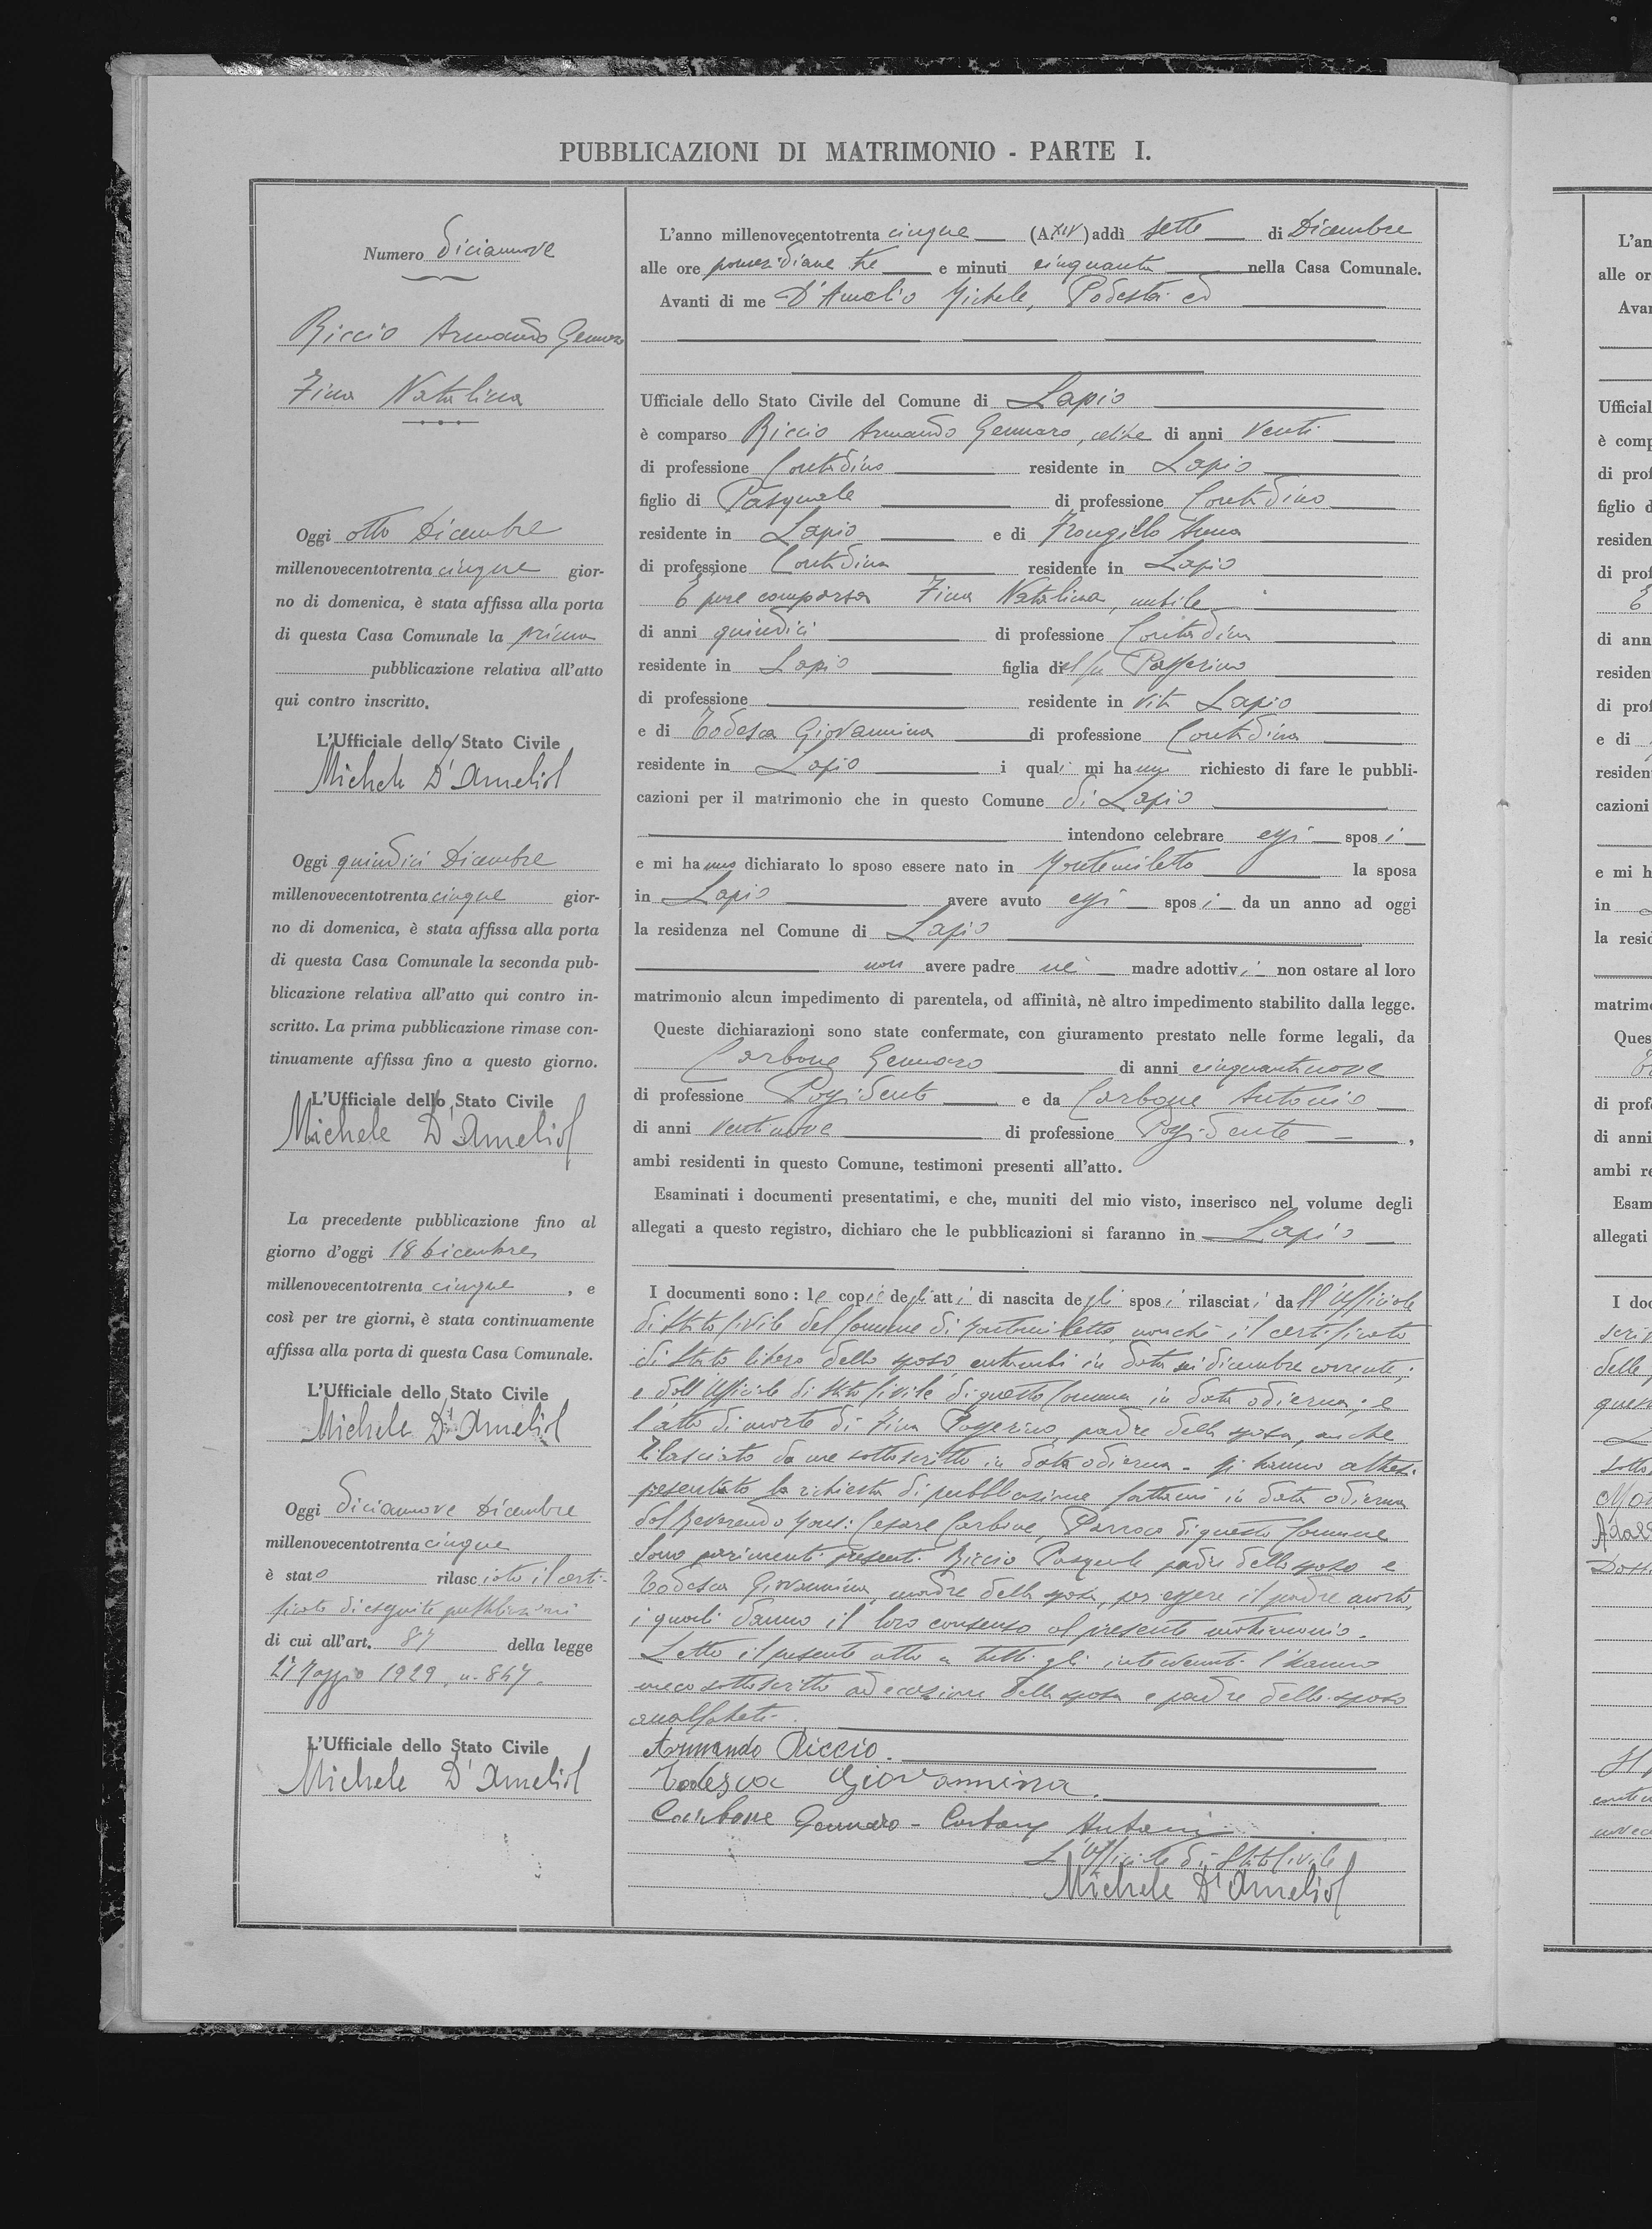 PUBBLICAZIONI DI MATRIMONIO - PARTE I.
Numero diciannove
Riccio Armando Gennaro
Fina Natalina
Oggi otto Dicembre
millenovecentotrenta cinque gior-
no di domenica, è stata affissa alla porta
di questa Casa Comunale la prima
pubblicazione relativa all'atto
qui contro inscritto.
L'Ufficiale dello Stato Civile
Michele D'Amelio
Oggi quindici Dicembre
millenovecentotrenta cinque gior-
no di domenica, è stata affissa alla porta
di questa Casa Comunale la seconda pub-
blicazione relativa all'atto qui contro in-
scritto. La prima pubblicazione rimase con-
tinuamente affissa fino a questo giorno.
L'Ufficiale dello Stato Civile
Michele D'Amelio
La precedente pubblicazione fino al
giorno d'oggi 18 Dicembre
millenovecentotrenta cinque, e
così per tre giorni, è stata continuamente
affissa alla porta di questa Casa Comunale.
L'Ufficiale dello Stato Civile
Michele D'Amelio
Oggi diciannove Dicembre
millenovecentotrenta cinque
è stato rilasciato il certi-
ficato di eseguite pubblicazioni
di cui all'art. 87 della legge
27 Maggio 1929, n. 847.
L'Ufficiale dello Stato Civile
Michele D'Amelio
L'anno millenovecentotrenta cinque (A. XIV) addì sette di Dicembre
alle ore pomeridiane tre e minuti cinquanta nella Casa Comunale.
Avanti di me D'Amelio Michele, Podestà ed
Ufficiale dello Stato Civile del Comune di Lapio
è comparso Riccio Armando Gennaro, celibe di anni venti
di professione Contadino residente in Lapio
figlio di Pasquale di professione Contadino
residente in Lapio e di Frongillo Anna
di professione Contadina residente in Lapio
E pure comparsa Fina Natalina, nubile
di anni quindici di professione Contadina
residente in Lapio figlia del fu Passerino
di professione residente in vita Lapio
e di Todesca Giovannina di professione Contadina
residente in Lapio i quali mi hanno richiesto di fare le pubbli-
cazioni per il matrimonio che in questo Comune di Lapio
intendono celebrare essi sposi
e mi hanno dichiarato lo sposo essere nato in Montemiletto la sposa
in Lapio avere avuto essi sposi da un anno ad oggi
la residenza nel Comune di Lapio
non avere padre nè madre adottivi non ostare al loro
matrimonio alcun impedimento di parentela, od affinità, nè altro impedimento stabilito dalla legge.
Queste dichiarazioni sono state confermate, con giuramento prestato nelle forme legali, da
Carbone Gennaro di anni cinquantanove
di professione Possidente e da Carbone Antonio
di anni ventinove di professione Possidente,
ambi residenti in questo Comune, testimoni presenti all'atto.
Esaminati i documenti presentatimi, e che, muniti del mio visto, inserisco nel volume degli
allegati a questo registro, dichiaro che le pubblicazioni si faranno in Lapio
I documenti sono: le copie degli atti di nascita degli sposi rilasciati dall'Ufficiale
di Stato Civile del Comune di Montemiletto nonchè il certificato
di Stato libero dello sposo, entrambi in data sei dicembre corrente;
e dall'Ufficiale di Stato Civile di questo Comune in data odierna; e
l'atto di morte di Fina Passerino, padre della sposa, anche
rilasciato da me sottoscritto in data odierna. Mi hanno altresì
presentato la richiesta di pubblicazione fattami in data odierna
dal Reverendo Mons: Cesare Carbone, Parroco di questo Comune
Sono parimenti presenti Riccio Pasquale padre dello sposo e
Todesca Giovannina, madre della sposa, per essere il padre morto,
i quali danno il loro consenso al presente matrimonio.
Letto il presente atto a tutti gli intervenuti l'hanno
meco sottoscritto ad eccezione della sposa e padre dello sposo
analfabeti.
Armando Riccio.
Todesca Giovannina.
Carbone Gennaro - Carbone Antonio
L'Ufficiale di Stato Civile
Michele D'Amelio
L'an
alle or
Avan
Ufficial
è comp
di prof
figlio d
residen
di prof
E
di ann
residen
di prof
e di
residen
cazioni
e mi h
in
la resid
matrimo
Ques
di prof
di anni
ambi re
Esam
allegati
I doc